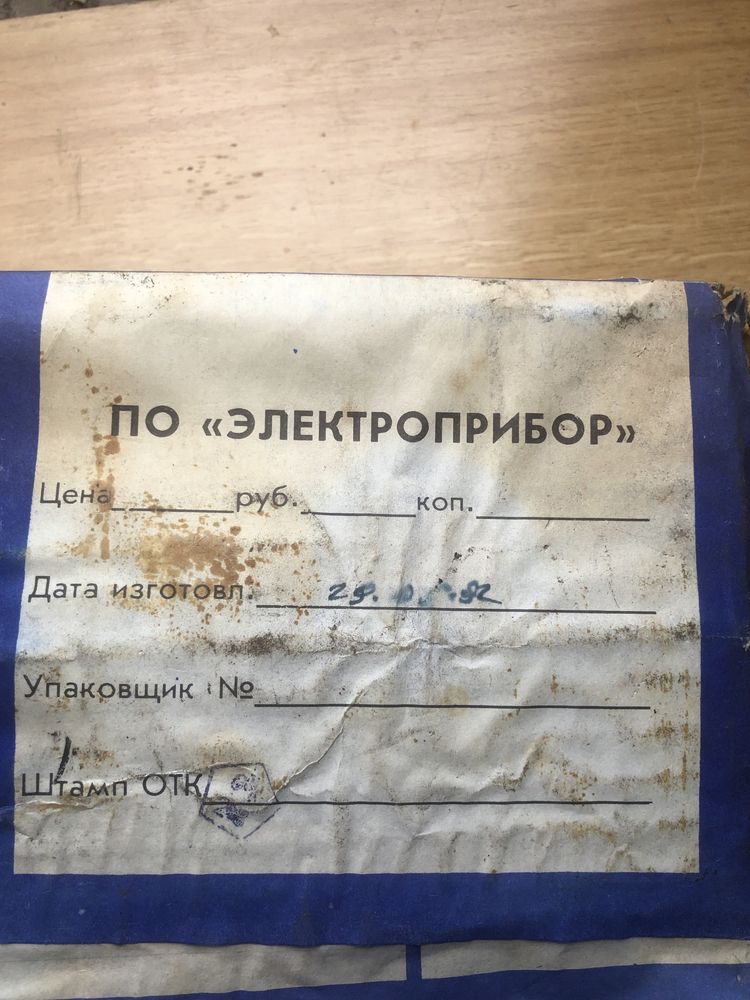 ПО «ЭЛЕКТРОПРИБОР»
Цена ______ руб. ______ коп. ______
Дата изготовл. ______
Упаковщик № ______
Штамп ОТК ______